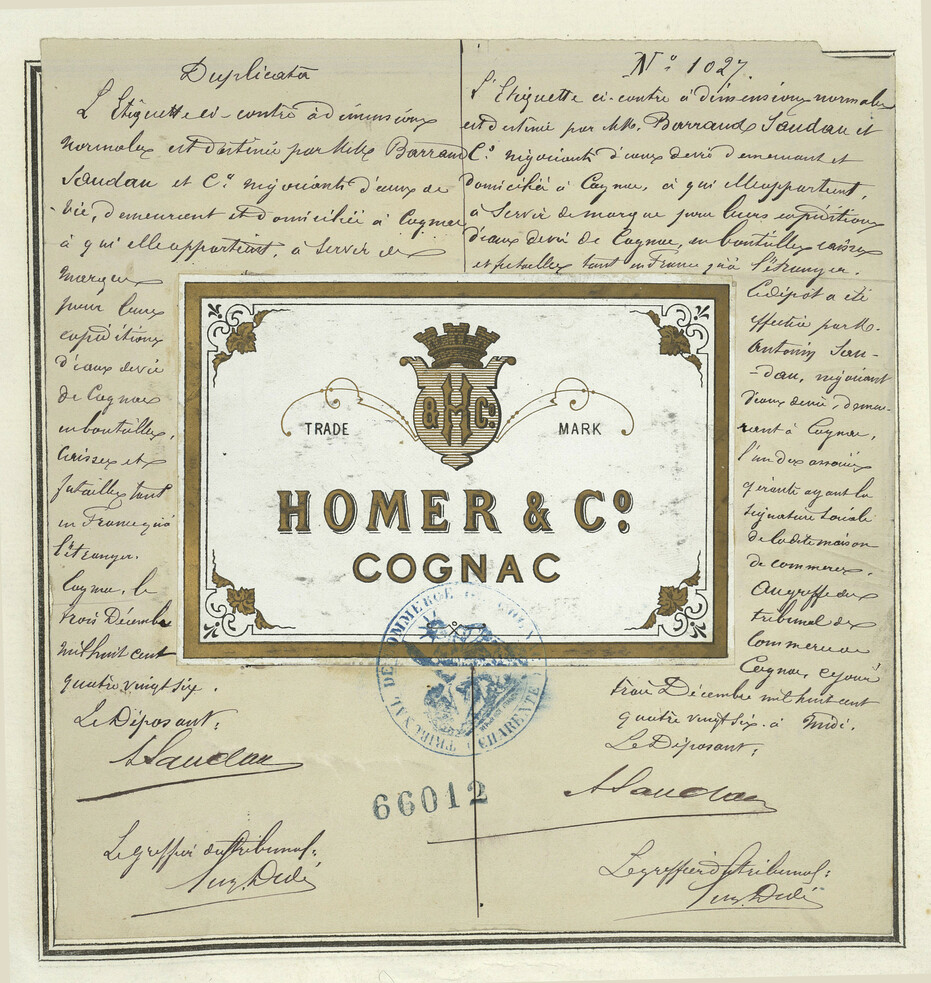 Duplicata
L'Etiquette ci-contre à dimensions
normales est destinée par MMrs Barraud
Saudau et Co. négociants d'eaux de
vie, demeurant et domiciliés à Cognac
à qui elle appartient, à servir de
marque
pour leurs
expéditions
d'eaux de vie
de Cognac
en bouteilles,
Caisses et
futailles tant
en France qu'à
l'étranger.
Cognac, le
trois Décembre
mil huit cent
quatre vingt six.
Le Déposant:
A Saudau
Le greffier du tribunal:
No. 1027.
L'Etiquette ci-contre à dimensions normales
est destinée par MM. Barraud Saudau et
Co. négociants d'eaux de vie demeurant et
domiciliés à Cognac, à qui elle appartient,
à servir de marque pour leurs expéditions
d'eaux de vie de Cognac, en bouteilles caisses
et futailles tant en France qu'à l'étranger.
Ce dépôt a été
effectué par M.
Antonin Sau-
-dau, négociant
d'eaux de vie, demeu-
rant à Cognac,
l'un des associés
gérants ayant la
signature sociale
de la dite maison
de commerce.
Au greffe du
tribunal de
Commerce de
Cognac, ce jour
trois Décembre mil huit cent
quatre vingt six. à Midi.
Le Déposant:
A Saudau
Le greffier du tribunal:
H & Co
TRADE MARK
HOMER & Co.
COGNAC
TRIBUNAL DE COMMERCE DE COGNAC
CHARENTE
66012